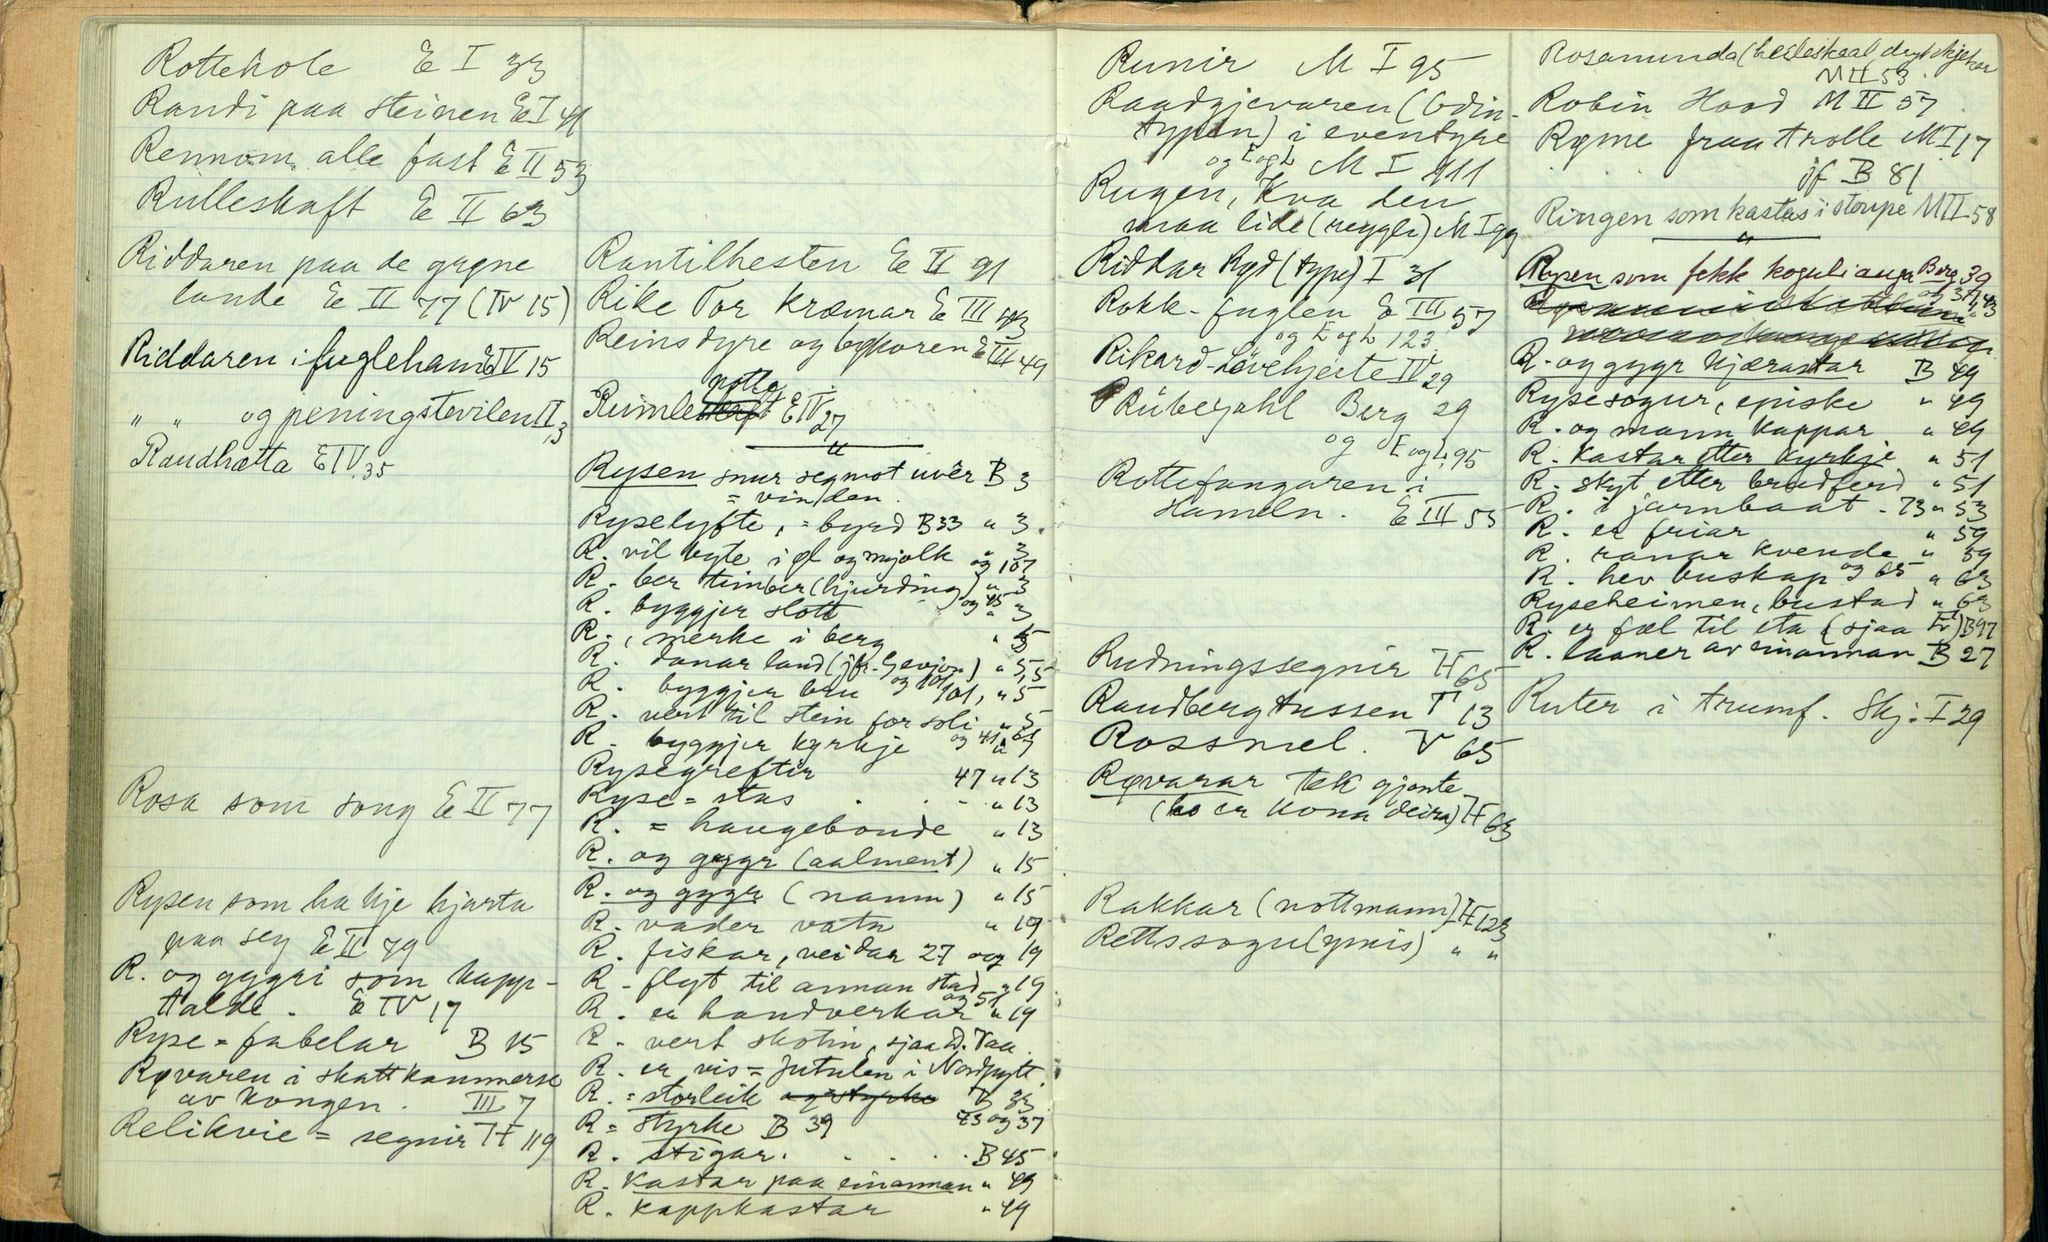 Rottehole E I 33
Randi paa steinen E I 41
Rennom alle fast E II 53
Rulleskaft E II 63
Riddaren paa de grøne
lande E II 77 (IV 15)
Riddaren i fuglehamE IV 15
" " og peningstevilen II,3
Raudhætta E IV.35
Rosa som song E II 77
Rysen som ha kje hjarta
paa seg E II 79
R. og gygri som kapp-
talde. E IV 17
Ryse = fabelar B 15
Røvaren i skattkammerse
av kongen. III 7
Relikvie = segnir H 119
Rantilhesten E II 91
Rike Tor kræmar E III 43
Reinsdyre og bykoren E III 49
Rumle notto E IV 27
"
Rysen snur seg mot uvêr B 3
= vinden.
Ryselyfte, = byrd B 33 " 3.
R. vil byte i øl og mjølk " 3
og 107
R. ber timber (hjurding) " 3
R. byggjer slott og 45 " 3
R., merke i berg " 5
R. danar land (jfr. Gevjon) " 5,5
R. byggjer bru og 101, " 5
R. vert til stein for soli " 5
R. byggjer kyrkje og 41, 61
Rysegrefter 47 " 13
Ryse = stas . . . " 13
R. = haugebonde " 13
R. og gygr (aalment) " 15
R. og gygr (namn) " 15
R. vader vatn " 19
R. fiskar, veidar 27 og 19
R. flyt til annan stad " 19
R. er handverkar og 51 " 19
R. vert skotin, sjaa D. Vaa.
R. er vis = Jutulen i Nordfjytt.
R. = storleik og styrke B 33
R = styrke B 39 43 og 37
R. stigar. . . . . B 45
R. kastar paa einannan " 49
R. kappkastar " 49
Runir M I 95
Raadgjevaren (Odin-
typen) i eventyre
og E og L M I 111
Rugen, Kva den
maa lide (reygle) M I 99
Riddar Ryd (type) I 31
Rokk-fuglen E III 57
og E og L 123.
Rikard-Løvehjerte IV 29
Rübezahl Berg 29
og E og L, 95
Rottefangaren i
Hameln. E III 55
Rudningssegnir H 65
Raudbergtussen T 13
Rossmel. V 65
Røvarar tek gjente
(ho er kona deira) H 63
Rakkar (nottmann) H 123
Rettssogu (ymis) " "
Rosamunda (
M II 53.
Robin Hood M II 57
Røme fraa trolle M I 17
jf B 81
Ringen som kastas i stoupe M II 58
"
Rysen som fekk kogul i auga Berg 39
og 37, 43
R. og gygr kjærastar B 49
Rysesogur, episke " 49
R. og mann kappar " 49
R. kastar etter kyrkje " 51
R. skyt etter brudferd " 51
R. i jarnbaat. 73 " 53
R. er friar " 59
R. ranar kvende " 59
R. hev buskap og 65 " 63
Ryseheimen, bustad " 63
R. er fæl til eta (sjaa Er) B 97
R. laaner av einannan B 27
Ruter i trumf. Skj. I 29